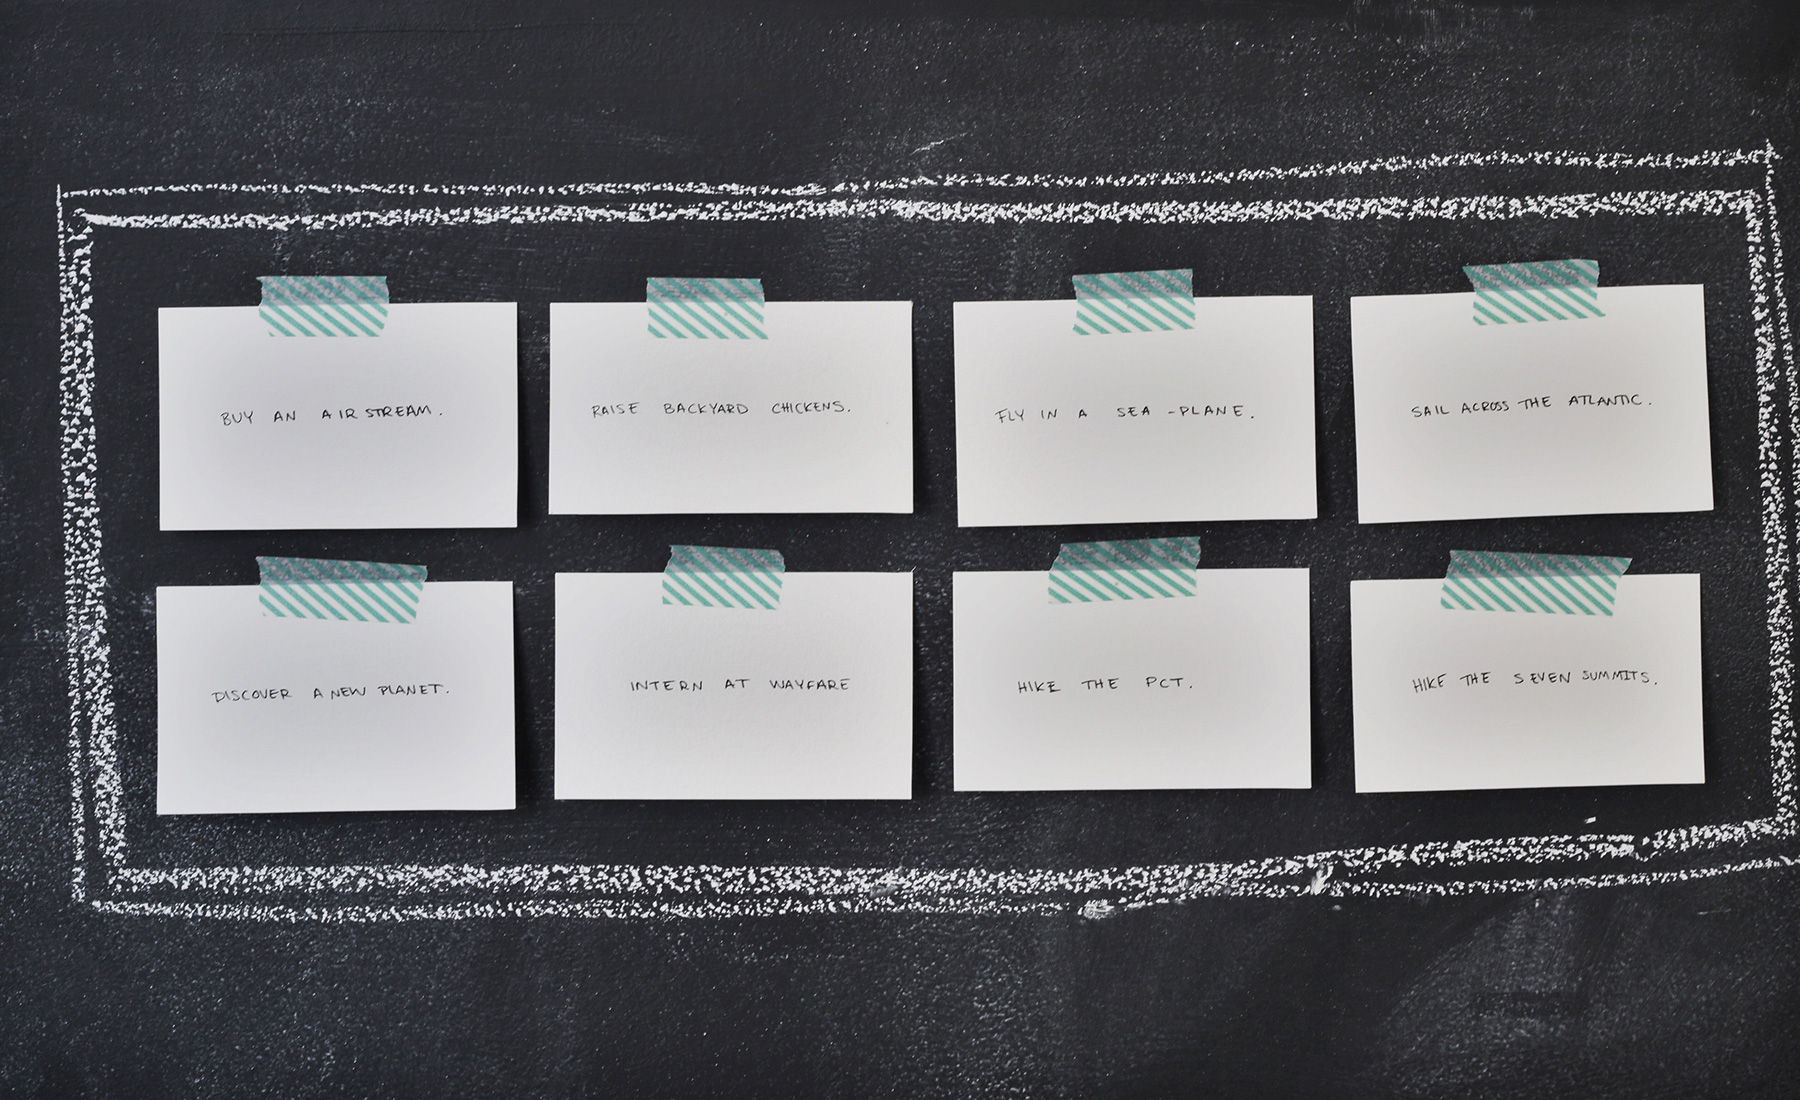 BUY AN AIRSTREAM.
RAISE BACKYARD CHICKENS.
FLY IN A SEA-PLANE.
SAIL ACROSS THE ATLANTIC.
DISCOVER A NEW PLANET.
INTERN AT WAYFARE
HIKE THE PCT.
HIKE THE SEVEN SUMMITS.